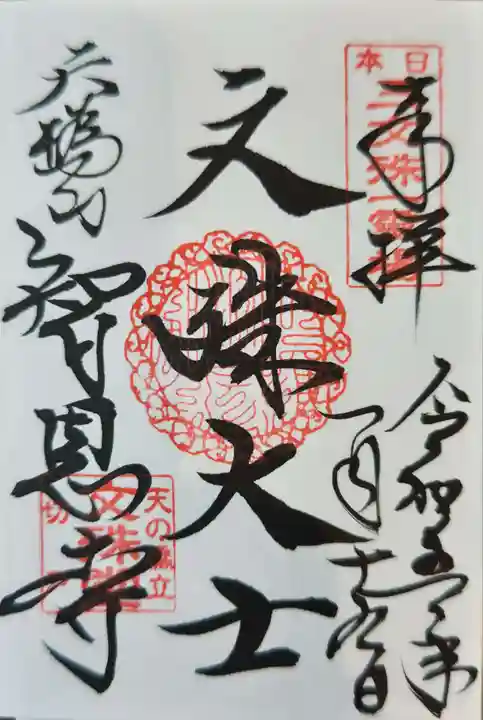 奉拝
日本
三文殊
令和五年
一月十九日
文殊大士
天橋山
智恩寺
天の橋立
文殊堂
切